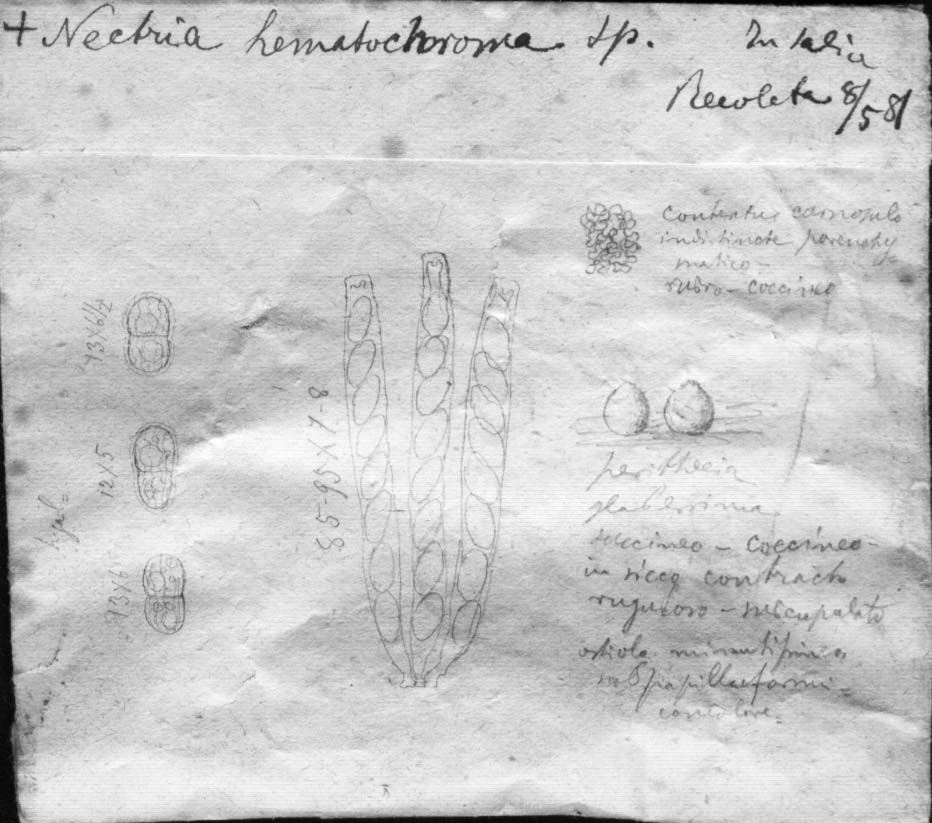 + Nectria hematochroma Sp. In salia
Recoleta 8/5 81
contextus carnosulo
indistincte parenchy
matico-
rubro-coccineo
13x6½
12x5
13x6
hyal=
85-95x7-8
perithecia
glaberrima
succineo - coccineo-
in sicco contracto
ruguloso - subcupulato
ostiolo minutissimo
subpapillaeformi-
concolore-